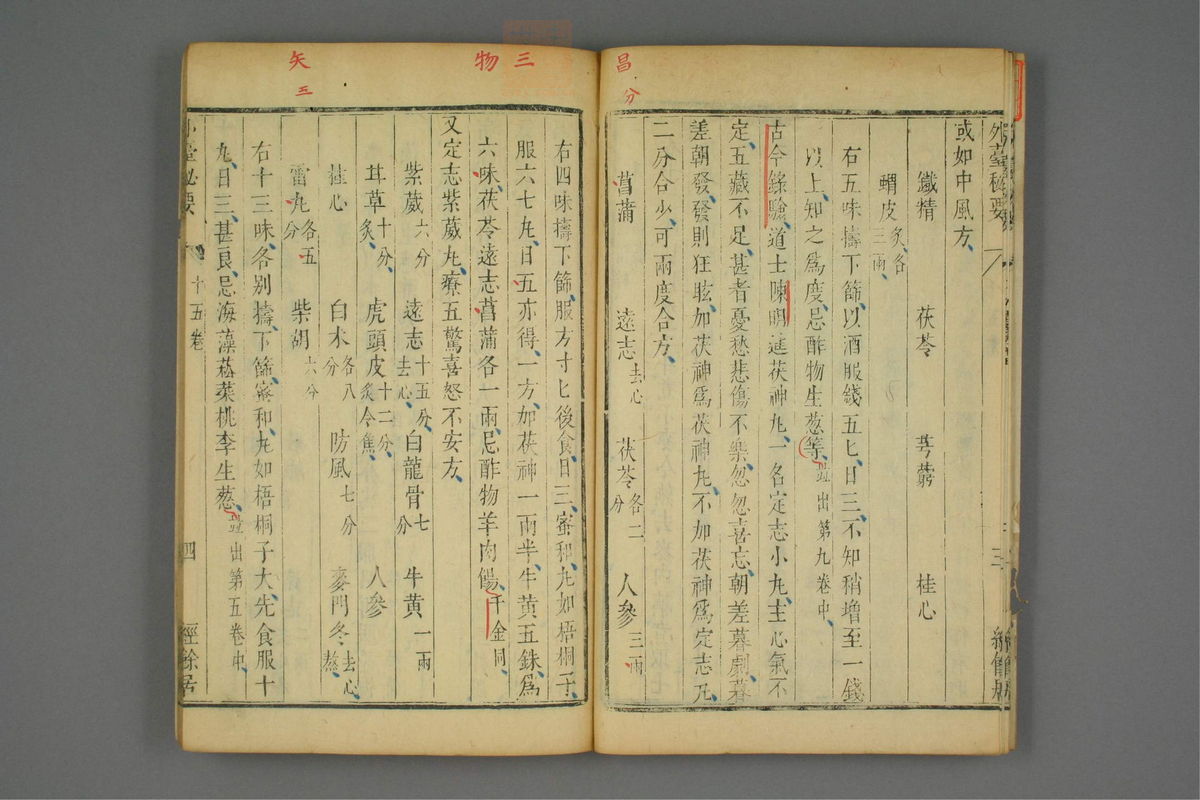 外臺秘要
三
或如中風方
鐵精 茯苓 芎藭 桂心
蝟皮炙各三兩
右五味擣下篩以酒服錢五匕日三不知稍增至一錢
以上知之爲度忌酢物生葱等並出第九卷中
古今錄驗道士陳明進茯神丸一名定志小丸主心氣不
定五藏不足甚者憂愁悲傷不樂忽忽喜忘朝差暮劇暮
差朝發發則狂眩加茯神爲茯神丸不加茯神爲定志丸
二分合少可兩度合方
菖蒲 遠志去心 茯苓各二分 人參三兩
昌
分
三
物
右四味擣下篩服方寸匕後食日三蜜和丸如梧桐子
服六七丸日五亦得一方加茯神一兩半牛黄五銖爲
六味茯苓遠志菖蒲各一兩忌酢物羊肉餳千金同
又定志紫葳丸療五驚喜怒不安方
紫葳六分 遠志十五分去心 白龍骨七分 牛黄一兩
甘草十分炙 虎頭皮十二分炙令焦 人參
桂心 白朮各八分 防風七分 麥門冬去心熬
雷丸各五分 柴胡六分
右十三味各别擣下篩蜜和丸如梧桐子大先食服十
丸日三甚良忌海藻菘菜桃李生葱並出第五卷中
矢
五
臺秘要
十五卷
四
經餘居